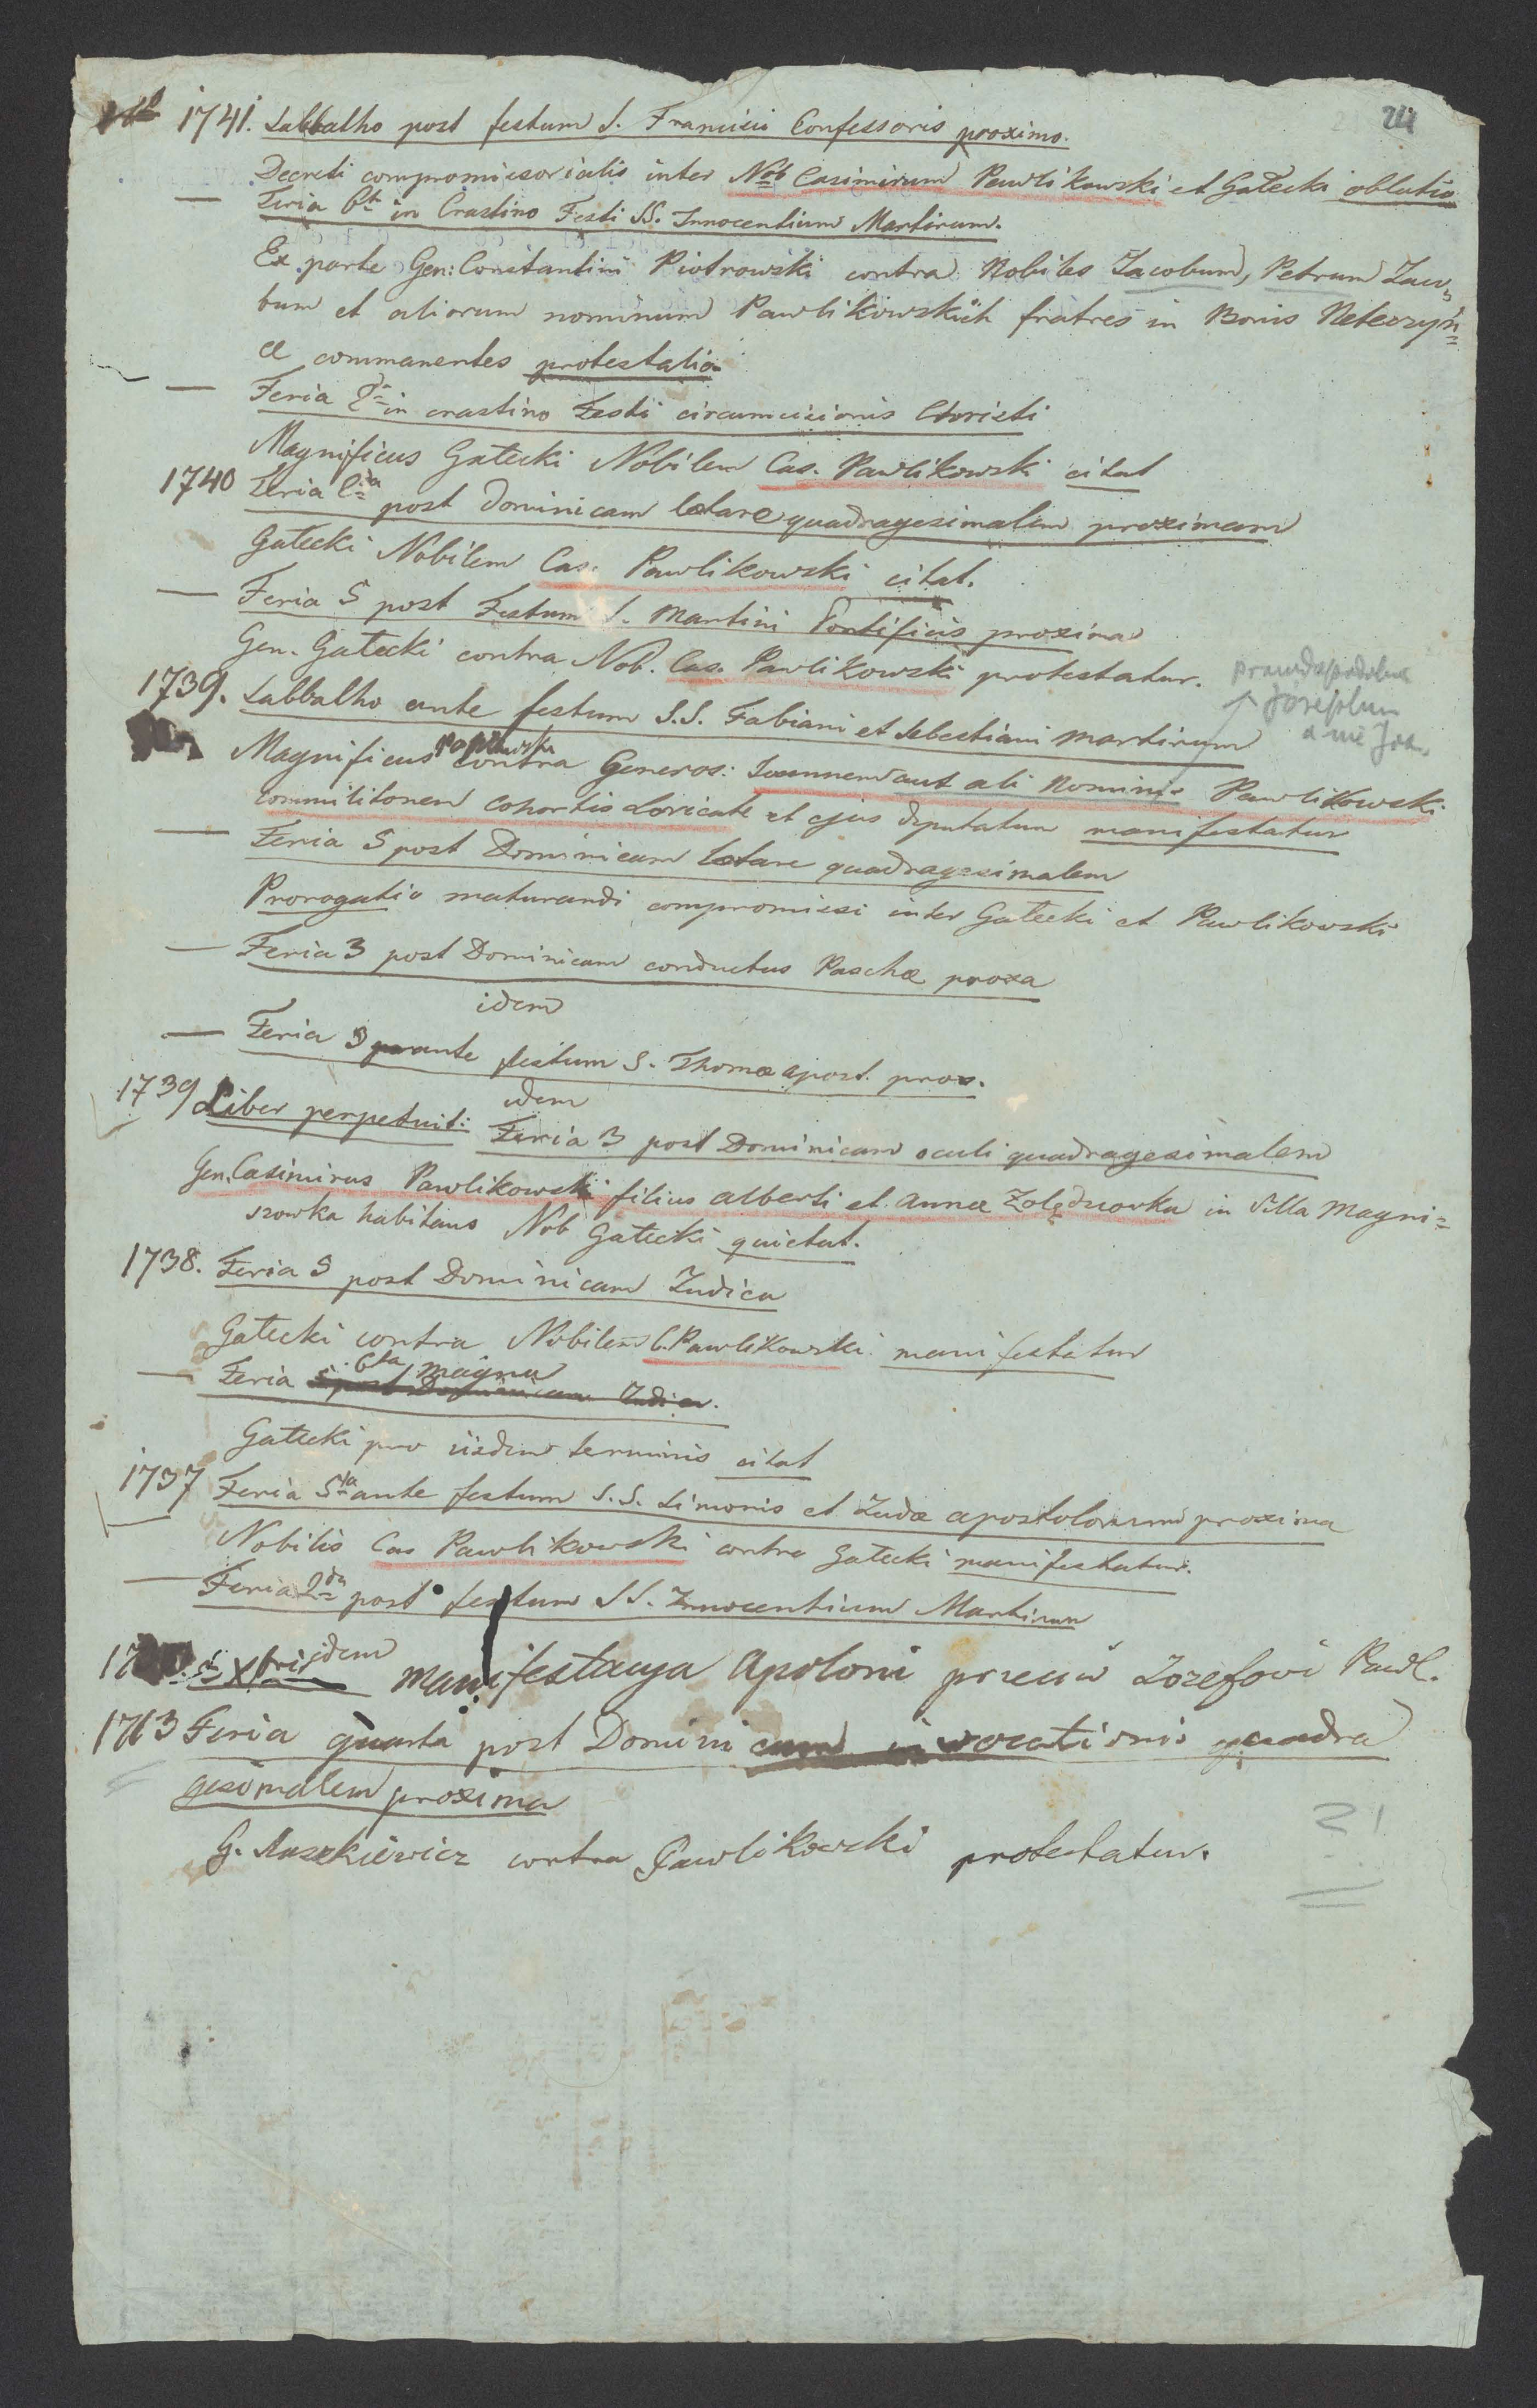 24
1741. Sabbatho post festum S. Francisci Confessoris proximo.
Decreti compromissorialis inter Nob Casimirum Pawlikowski et Gałecki oblatio
— Feria 6t in Crastino Festi SS. Innocentium Martirum.
Ex parte Gen: Constantini Piotrowski contra Nobiles Jacobum, Petrum Jacu=
bum et aliorum nominum Pawlikowskich fratres in Bonis Neterzyń=
ce commanentes protestatio.
— Feria 2 in crastino Festi circumcisionis Christi
Magnificus Gałecki Nobilem Cas. Pawlikowski citat
1740 Feria post Dominicam lætare quadragesimalem proximam
Gałecki Nobilem Cas. Pawlikowski citat.
— Feria 5 post Festum S. Martini Pontificis proxima
Gen. Gałecki contra Nob. Cas. Pawlikowski protestatur.
prawdopodobnie
Josephum
a nie Joa.
1739. Sabbatho ante festum S.S. Fabiani et Sebestiani martirum
Magnificus contra Generos: Joannem aut ali Nominis Pawlikowski
commilitonem cohortis Loricate et ejus deputatum manifestatur
— Feria 5 post Dominicam lætare quadragesimalem
Prorogatio maturandi compromissi inter Gałecki et Pawlikowski
— Feria 3 post Dominicam conductus Paschæ proxa
idem
— Feria 3 ante festum S. Thomæ apost. prox.
idem
1739 Liber perpetuit: Feria 3 post Dominicam oculi quadragesimalem
Gen. Casimirus Pawlikowski filius alberti et annæ Zolędzowka in Villa Magni=
szowka habitans Nob Gałecki quietat.
1738. Feria 5 post Dominicam Judica
Gałecki contra Nobilem C. Pawlikowski manifestatur
— Feria 6ta magna 5 post Dominicam Judica.
Gałecki pro iisdem terminis citat
1737 Feria 5ta ante festum S.S. Simonis et Judæ apostolorum proxima
Nobilis Cas Pawlikowski contra Gałecki manifestatur.
— Feria 2da post festum SS. Innocentium Martirum
idem
Xbris Manifestacya Apoloni przeciw Jozefowi Pawl.
1763 Feria quarta post Dominicam invocationis quadra
gesimalem proxima
G. Muszkiewicz contra Pawlikowski protestatur.